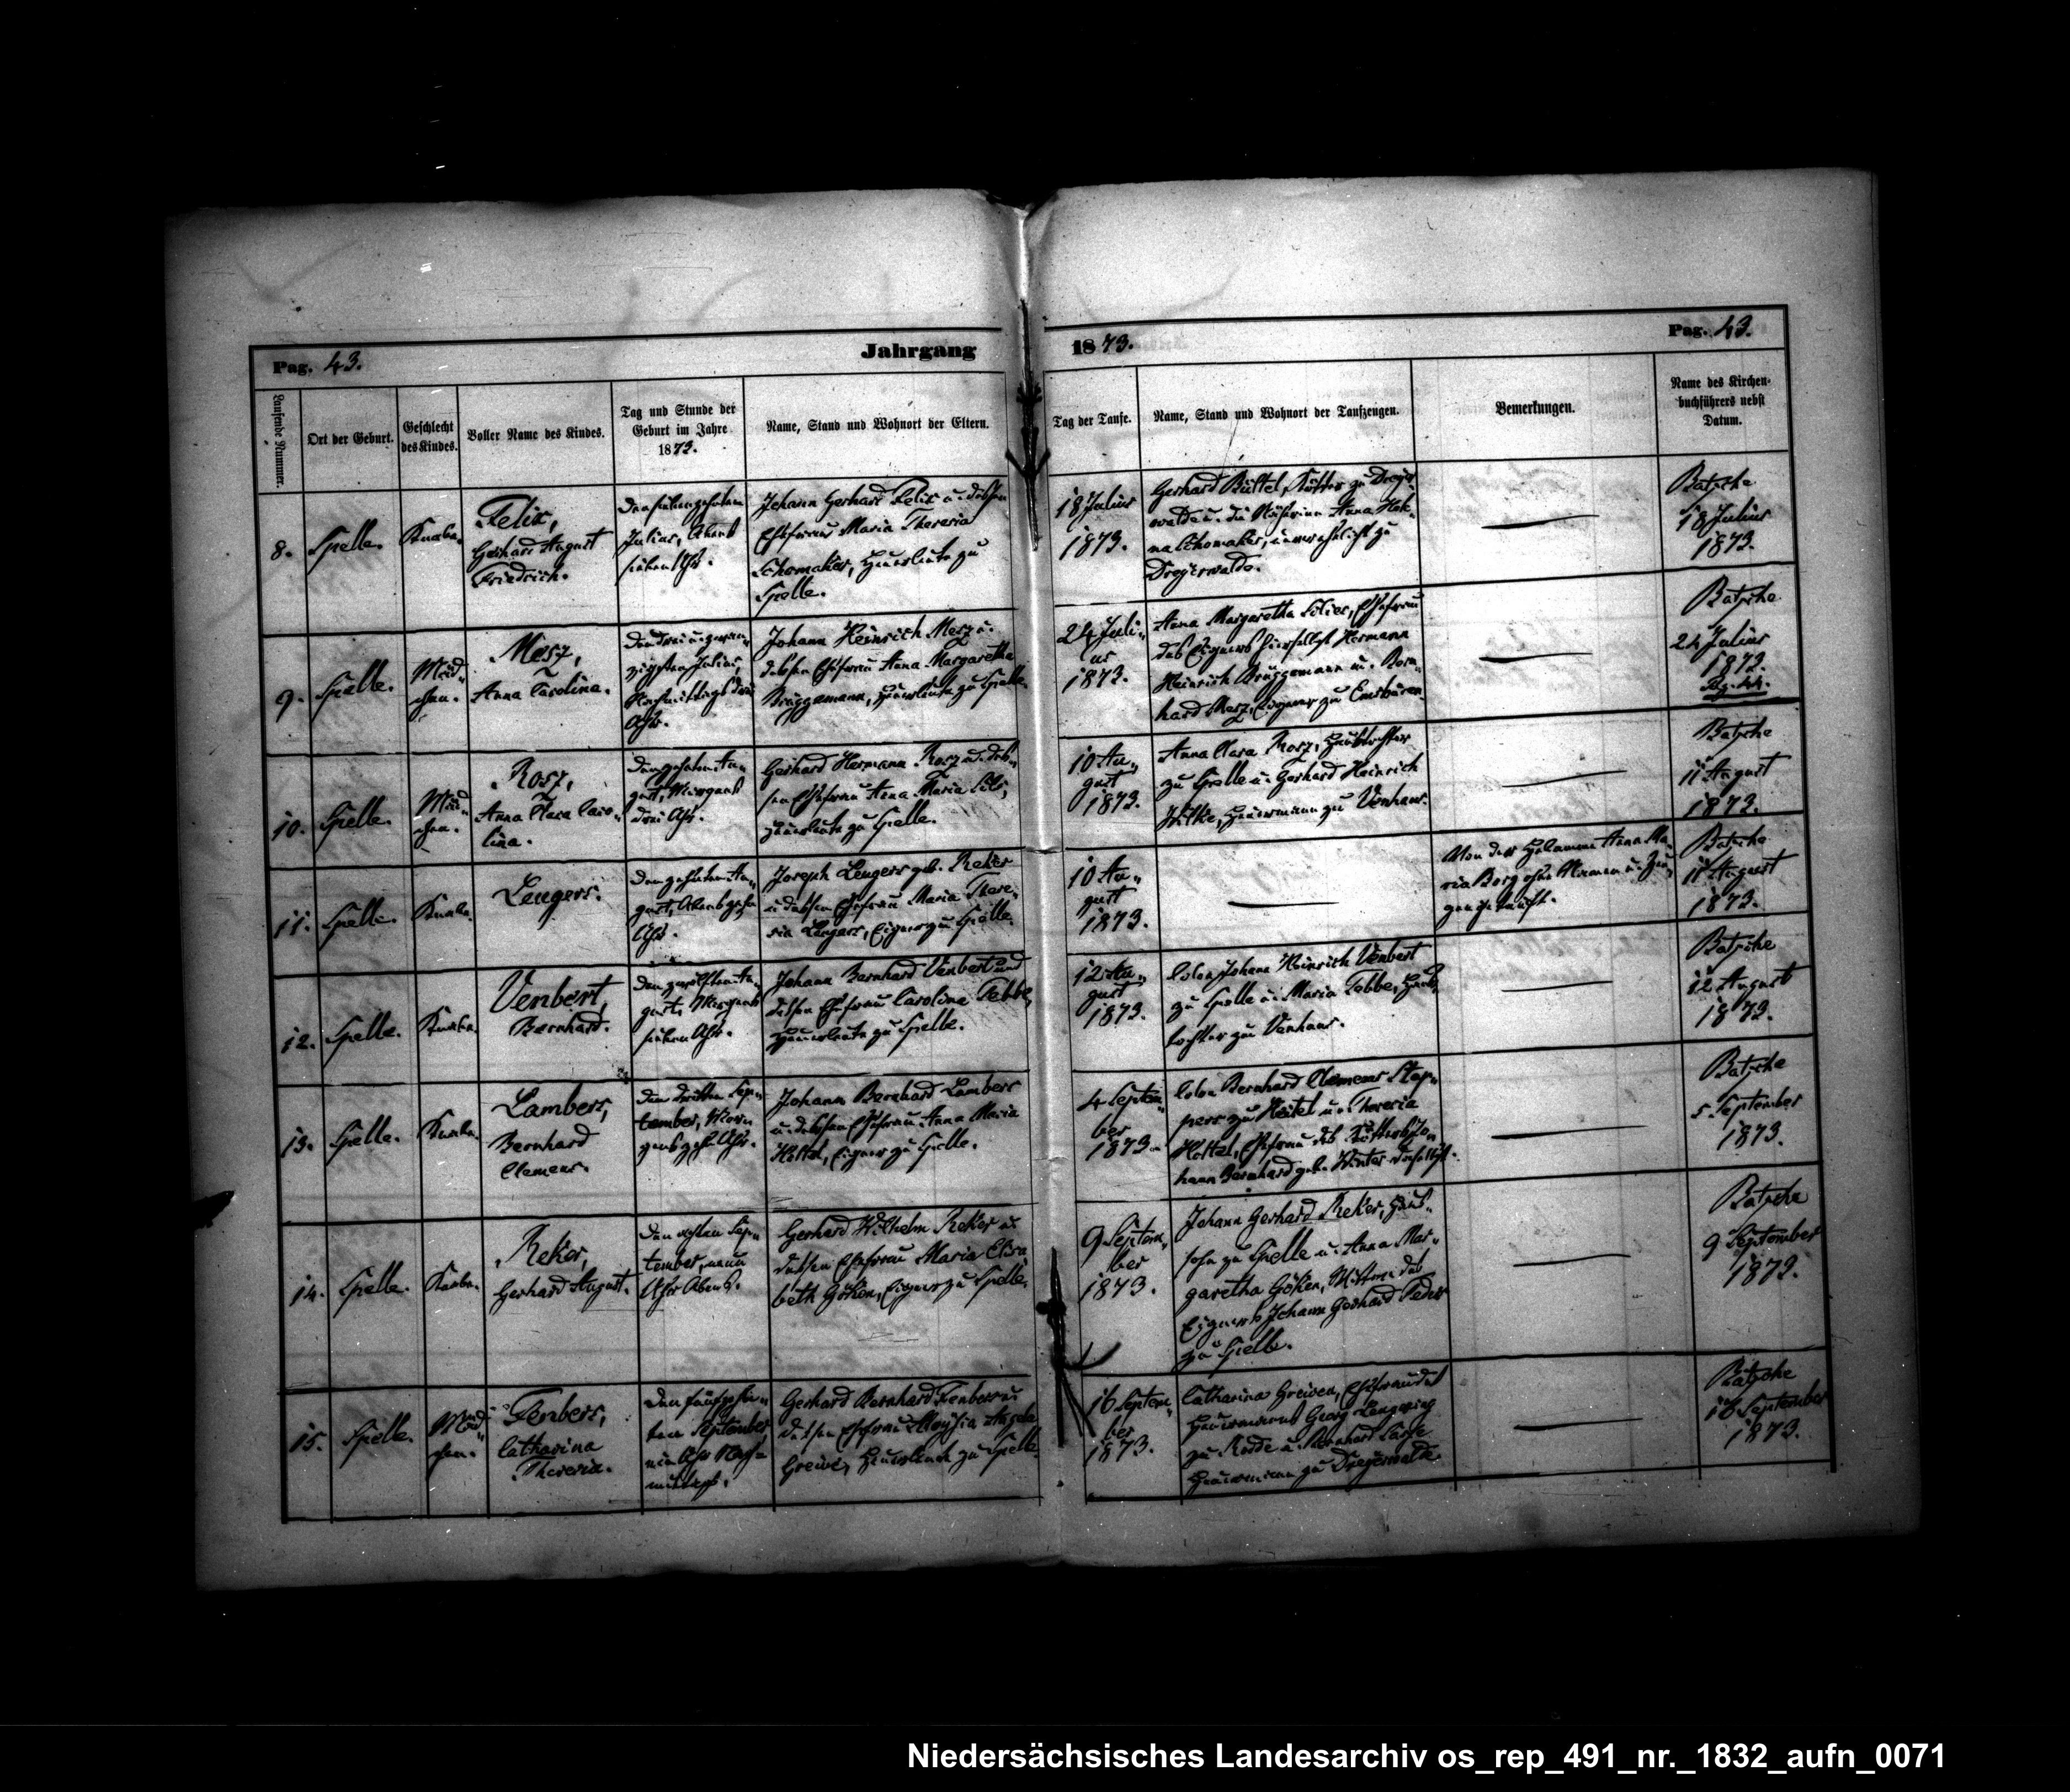 Pag. 43.
Jahrgang 1873.
Pag. 43.
Laufende Nummer.
Ort der Geburt.
Geschlecht
des Kindes.
Voller Name des Kindes.
Tag und Stunde der
Geburt im Jahre
1873.
Name, Stand und Wohnort der Eltern.
Tag der Taufe.
Name, Stand und Wohnort der Taufzeugen.
Bemerkungen.
Name des Kirchen-
buchführers nebst
Datum.
8.
Spelle.
Knabe.
Felix,
Gerhard August
Friedrich.
Den siebenzehnten
Julius, Abends
sieben Uhr.
Johann Gerhard Felix u. dessen
Ehefrau Maria Theresia
Schomaker, Heuerleute zu
Spelle.
18 Julius
1873.
Gerhard Bültel, Kötter zu Dreyer
walde u. die Näherinn Anna Hele-
na Schomaker, unverehelicht zu
Dreyerwalde.
Batsche
18 Julius
1873.
9.
Spelle.
Mäd-
chen.
Mersz,
Anna Carolina.
Den drei u. zwan-
zigsten Julius,
Nachmittags drei
Uhr.
Johann Heinrich Mersz u.
dessen Ehefrau Anna Margaretha
Brüggemann, Heuerleute zu Spelle.
24 Juli-
us
1873.
Anna Margaretha Ehefrau
des Eigners hierselbst Hermann
Heinrich Brüggemann u. Bern-
hard Mersz, Eigner zu Emsbüren.
Batsche
24 Julius
1873.
10.
Spelle.
Mäd-
chen.
Rosz,
Anna Clara Caro-
lina.
Den zehnten Au-
gust, Morgens
drei Uhr.
Gerhard Hermann Rosz u. des-
sen Ehefrau Anna Maria
Heuerleute zu Spelle.
10 Au-
gust
1873.
Anna Clara Rosz, Haustochter
zu Spelle u. Gerhard Heinrich
Wilke, Heuermann zu Venhaus.
Batsche
11 August
1873.
11.
Spelle.
Knabe.
Lengers.
Den zehnten Au-
gust, Abends zehn
Uhr.
Joseph Lengers geb. Reker
u. dessen Ehefrau Maria There-
sia Lengers, Eigner zu Spelle.
10 Au-
gust
1873.
Von der Hebamme Anna Ma-
ria Borg ohne Namen u. Zeu-
gen getauft.
Batsche
11 August
1873.
12.
Spelle.
Knabe.
Venbert,
Bernhard.
Den zwölften Au-
gust, Morgens
sieben Uhr.
Johann Bernhard Venbert und
dessen Ehefrau Carolina Tebbe,
Heuerleute zu Spelle.
12 Au-
gust
1873.
Colon Johann Heinrich Venbert
zu Spelle u. Maria Tebbe, Haus-
tochter zu Venhaus.
Batsche
12 August
1873.
13.
Spelle.
Knabe.
Lambers,
Bernhard
Clemens.
Den dritten Sep-
tember, Mor-
gens zehn Uhr.
Johann Bernhard Lambers
u. dessen Ehefrau Anna Maria
Heitel, Eigner zu Spelle.
4 Septem-
ber
1873.
Colon Bernhard Clemens
zu Heitel u. Theresia
Heitel, Ehefrau des Kötters Jo-
hann Bernhard geb. Winter daselbst.
Batsche
5 September
1873.
14.
Spelle.
Knabe.
Reker,
Gerhard August.
Den achten Sep-
tember, neun
Uhr Abends.
Gerhard Wilhelm Reker u.
dessen Ehefrau Maria Elisa
beth Göken, Eigner zu Spelle.
9 Septem-
ber
1873.
Johann Gerhard Reker, Haus-
sohn zu Spelle u. Anna Mar-
garetha Göken, Wittwe des
Eigners Johann Gerhard
zu Spelle.
Batsche
9 September
1873.
15.
Spelle.
Mäd-
chen.
Fenbers,
Catharina
Theresia.
Den fünfzehn-
ten September,
ein Uhr Nach-
mittags.
Gerhard Bernhard Fenbers u.
dessen Ehefrau Aloysia Angela
Greive, Heuerleute zu Spelle.
16 Septem-
ber
1873.
Catharina Greiven, Ehefrau des
Heuermanns Georg
zu Rodde u. Bernhard
Heuermann zu Dreyerwalde.
Batsche
16 September
1873.
Niedersächsisches Landesarchiv os_rep_491_nr._1832_aufn_0071